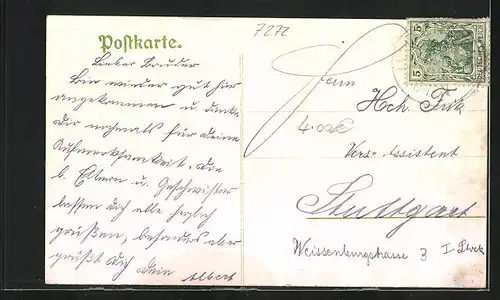 7272
Postkarte.
5 5
Lieber Bruder
Bin wieder gut hier
angekommen u. danke
Dir nochmals für deine
Aufmerksamkeit. Die
l. Eltern u. Geschwister
lassen dich alle herzlich
grüßen, besonders aber
grüßt Dich dein Albert
Herrn
Hch.
4.00€
Vers. Assistent
Stuttgart
Weissenburgstrasse 3 I. Stock